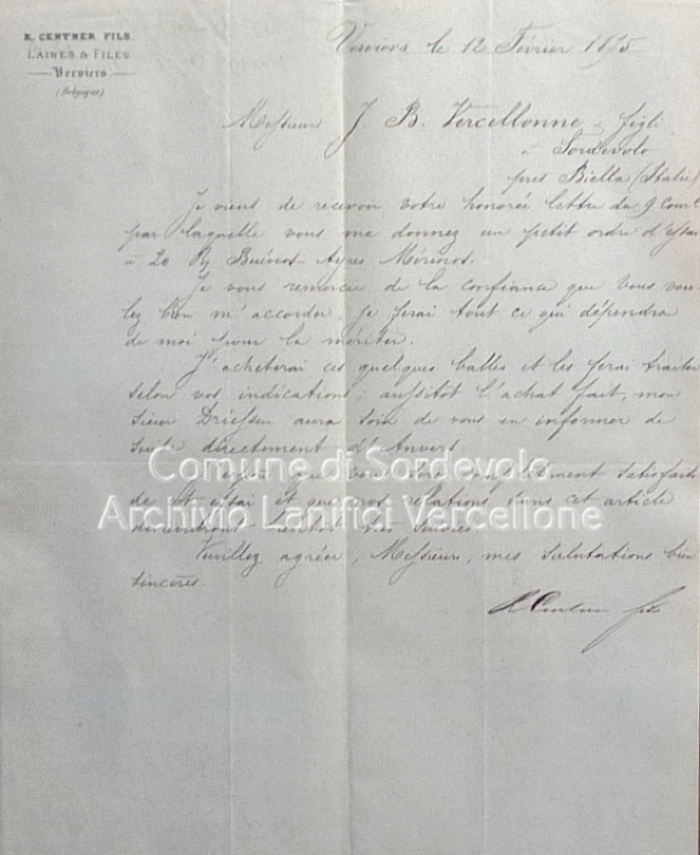 R. CENTNER FILS.
LAINES & FILÉS
Verviers
(Belgique)
Verviers le 12 Février 1875
Messieurs J. B. Vercellonne & figli
à Sordevolo
près Biella (Italie)
Je viens de recevoir votre honorée lettre du 9 Cour
par laquelle vous me donnez un petit ordre d'
à 20 Buénos-Ayres Mérinos.
Je vous remercie de la confiance que vous vou-
lez bien m'accorder, je ferai tout ce qui dépendra
de moi pour la mériter.
J'acheterai ces quelques balles et les ferai traiter
selon vos indications; aussitôt l'achat fait, mon
sieur Driessen aura soin de vous en informer de
suite directement d'Anvers
que vous complètement satisfaits
de cet essai et que nos relations dans cet article
deviendront bientôt très
Veuillez agréer, Messieurs, mes salutations bien
sincères
R Centner fils
Comune di Sordevolo
Archivio Lanifici Vercellone